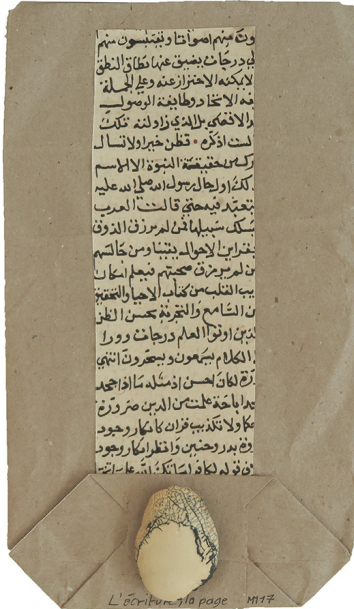 منهم اصواتا ويقتبسون منهم
درجات يضيق عنها نطاق النطق
لا يمكنه الاحتراز عنه وعلى الجملة
الاتحاد وطايفة الوصول
الذي زاولته تلك
لست اذكره • فظن خيرا ولا تسال
رك من حقيقة النبوة الا الاسم
لك اول حال رسول الله صلى الله عليه
يتعبد فيه حتى قالت العرب
سلك سبيلها فمن لم يرزق الذوق
قراين الاحوال يقينا ومن جالسهم
ن لم يرزق صحبتهم فيعلم امكان
يب القلب من كتاب الاحيا والتحقيق
من التسامع والتجربة بحسن الظن
الذين اوتوا العلم درجات وورا
الكلام يسمعون ويسخرون انتهى
رة لكان احسن اذ مثله ما اذا جحد
اباحة علمت من الدين ضرورة
ولا تكذيب قران كانكار وجود
وة بدر وحنين وانظر انكار وجود
L'écriture, la page M17